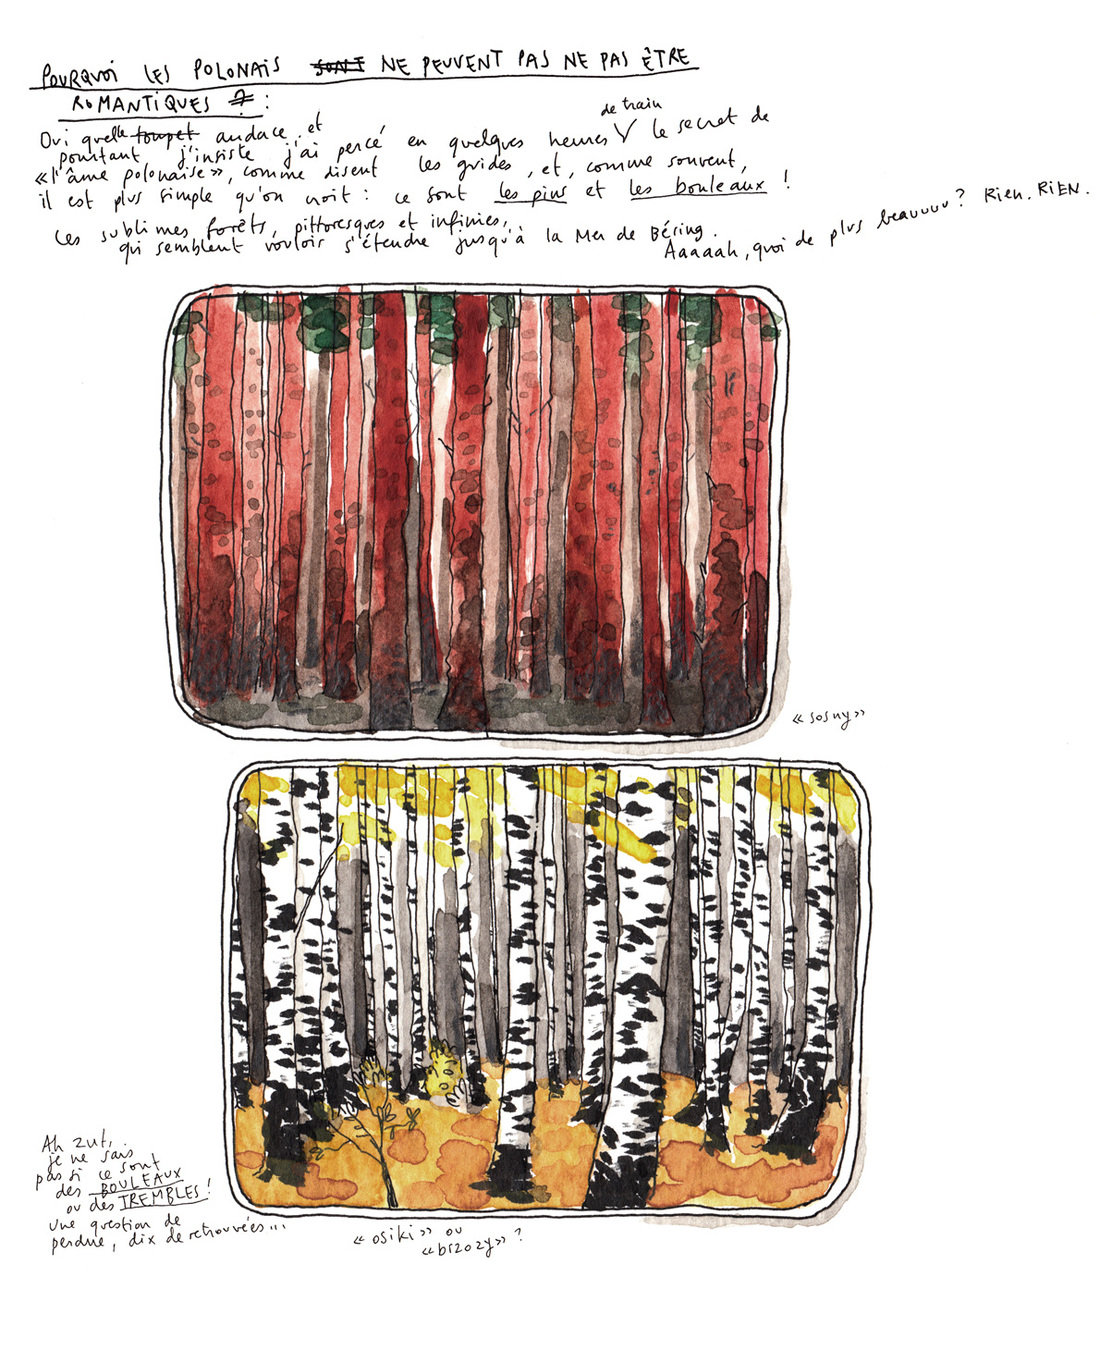 POURQUOI LES POLONAIS SONT NE PEUVENT PAS NE PAS ÊTRE
ROMANTIQUES ? :
de train
Oui quelle toupet audace, et
pourtant j'insiste j'ai percé en quelques heures V le secret de
«l'âme polonaise», comme disent les guides, et, comme souvent,
il est plus simple qu'on croit : ce sont les pins et les bouleaux !
Les sublimes forêts, pittoresques et infinies,
qui semblent vouloir s'étendre jusqu'à la Mer de Béring.
Aaaaah, quoi de plus beauuuu ? Rien. RIEN.
«sosny»
Ah zut,
je ne sais
pas si ce sont
des BOULEAUX
ou des TREMBLES !
Une question de
perdue, dix de retrouvées...
«osiki» ou
«brzozy» ?